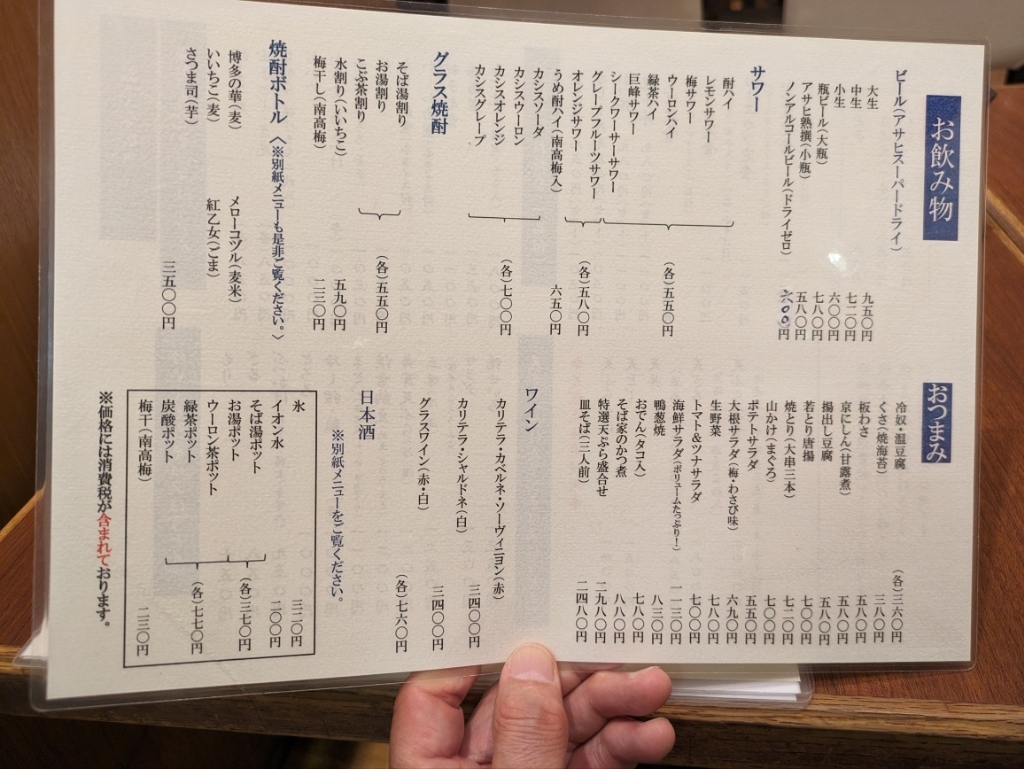 お飲み物
ビール(アサヒスーパードライ)
大生 九五〇円
中生 七二〇円
小生 六〇〇円
瓶ビール(大瓶) 七八〇円
アサヒ熟撰(小瓶) 五八〇円
ノンアルコールビール(ドライゼロ) 六〇〇円
サワー
酎ハイ
レモンサワー
梅サワー
ウーロンハイ
緑茶ハイ
巨峰サワー
シークワーサーサワー
(各)五五〇円
グレープフルーツサワー
オレンジサワー
(各)五八〇円
うめ酎ハイ(南高梅入) 六五〇円
カシスソーダ
カシスウーロン
カシスオレンジ
カシスグレープ
(各)七〇〇円
グラス焼酎
そば湯割り
お湯割り
こぶ茶割り
(各)五五〇円
水割り(いいちこ) 五九〇円
梅干し(南高梅) 二三〇円
焼酎ボトル 〈※別紙メニューも是非ご覧ください。〉
博多の華(麦) メローコヅル(麦米)
いいちこ(麦) 紅乙女(ごま)
さつま司(芋)
三五〇〇円
おつまみ
冷奴・温豆腐 (各)三六〇円
くさ(焼海苔) 三八〇円
板わさ 五八〇円
京にしん(甘露煮) 五八〇円
揚出し豆腐 五八〇円
若とり唐揚 七〇〇円
焼とり(大串三本) 七二〇円
山かけ(まぐろ) 七〇〇円
ポテトサラダ 五五〇円
大根サラダ(梅・わさび味) 六九〇円
生野菜 七八〇円
トマト&ツナサラダ 七〇〇円
海鮮サラダ(ボリュームたっぷり!) 一一三〇円
鴨葱焼 八三〇円
おでん(タコ入) 七八〇円
そば家のかつ煮 八八〇円
特選天ぷら盛合せ 二九八〇円
皿そば(三人前) 二四八〇円
ワイン
カリテラ・カベルネ・ソーヴィニヨン(赤) 三四〇〇円
カリテラ・シャルドネ(白) 三四〇〇円
グラスワイン(赤・白) (各)七六〇円
日本酒
※別紙メニューをご覧ください。
氷 三二〇円
イオン水 二〇〇円
そば湯ポット
お湯ポット
(各)三七〇円
ウーロン茶ポット
緑茶ポット
炭酸ポット
(各)七七〇円
梅干(南高梅) 二三〇円
※価格には消費税が含まれております。